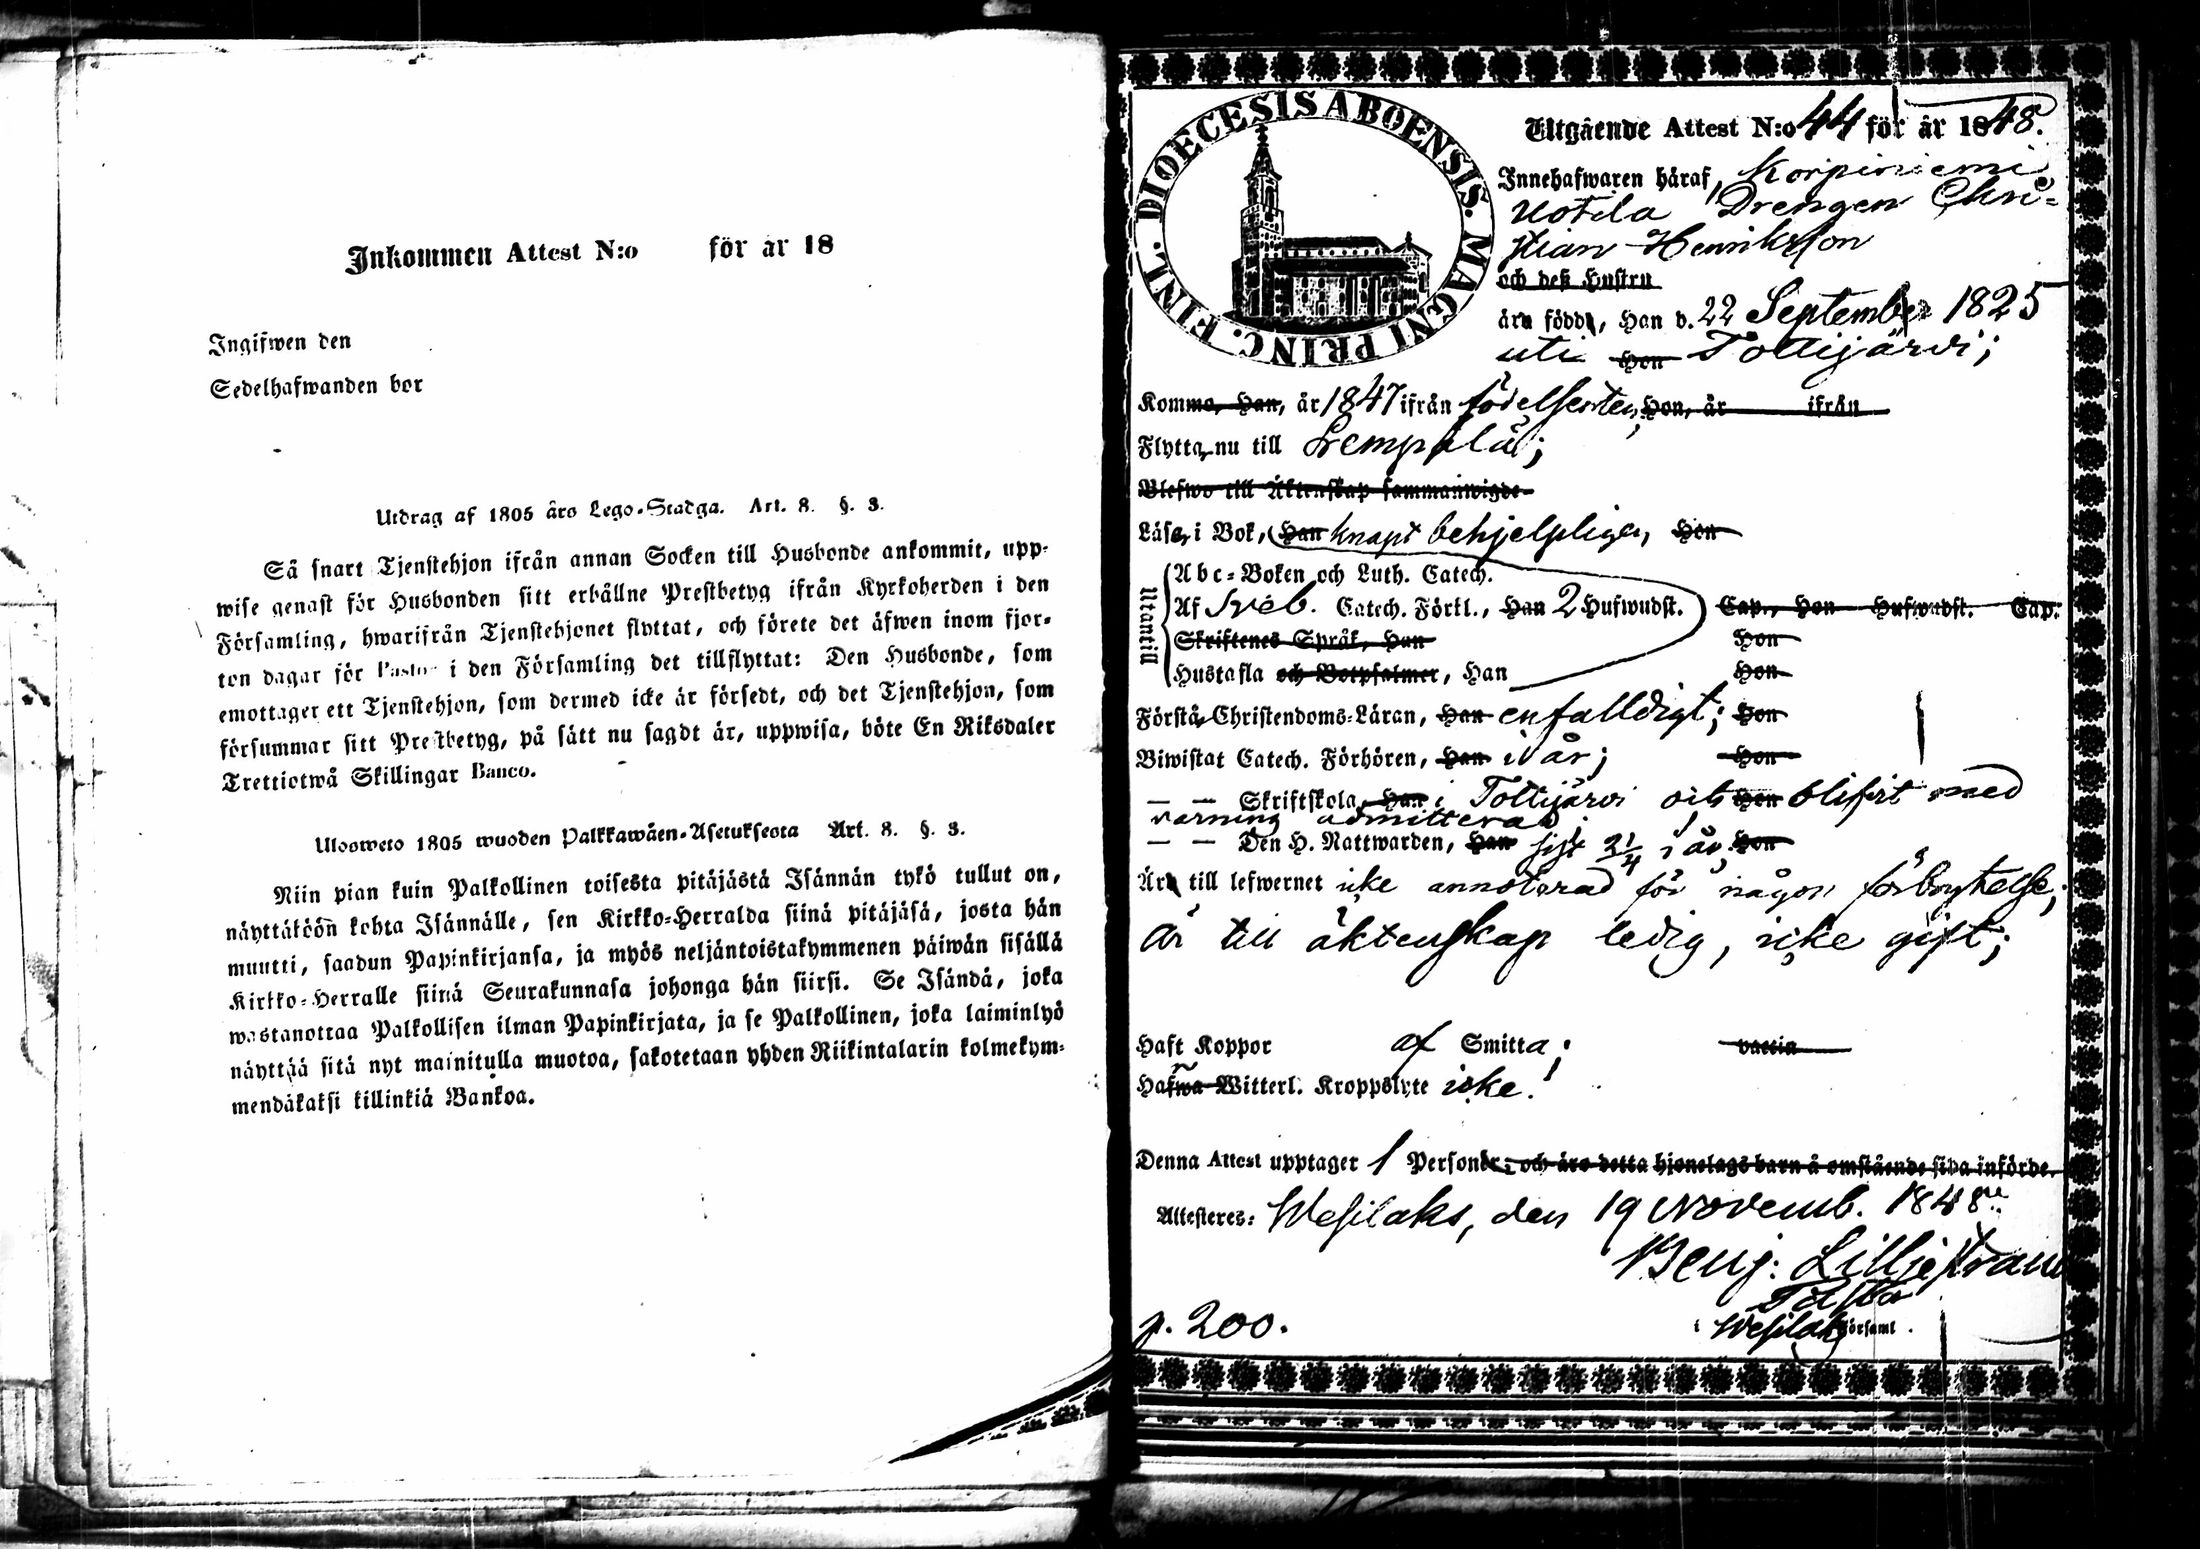 Inkommen Attest N:o för år 18
Ingifwen den
Sedelhafwanden bor
Utdrag af 1805 års Lego-Stadga. Art. 8. §. 3.
Så snart Tjenstehjon ifrån annan Socken till Husbonde ankommit, upp-
wise genast för Husbonden sitt erhållne Prestbetyg ifrån Kyrkoherden i den
Församling, hwarifrån Tjenstehjonet flyttat, och förete det äfwen inom fjor-
ton dagar för Pastor i den Församling det tillflyttat: Den Husbonde, som
emottager ett Tjenstehjon, som dermed icke är försedt, och det Tjenstehjon, som
försummar sitt Prestbetyg, på sätt nu sagdt är, uppwisa, böte En Riksdaler
Trettiotwå Skillingar Banco.
Ulosweto 1805 wuoden Palkkawäen-Asetuksesta Art. 8. §. 3.
Niin pian kuin Palkollinen toisesta pitäjästä Isännän tykö tullut on,
näyttäköön kohta Isännälle, sen Kirkko-Herralda siinä pitäjäsä, josta hän
muutti, saadun Papinkirjansa, ja myös neljäntoistakymmenen päiwän sisällä
Kirkko-Herralle siinä Seurakunnasa johonga hän siirsi. Se Isändä, joka
wastanottaa Palkollisen ilman Papinkirjata, ja se Palkollinen, joka laiminlyö
näyttää sitä nyt mainitulla muotoa, sakotetaan yhden Riikintalarin kolmekym-
mendäkaksi killinkiä Bankoa.
DIOECESIS ABOENSIS. MAGNI PRINC. FINL.
Utgående Attest N:o 44 för år 1848.
Innehafwaren häraf, Korpiniemi
Uotila Drengen Chri-
stian Henriksson
och deß Hustru
äro födde, Han d. 22 September 1825
uti Hon Tottijärvi;
Komma, Han, år 1847 ifrån födelseorten, Hon, år ifrån
Flytta nu till Lempälä;
Blefwo till Äktenskap sammanwigde
Läsa i Bok, Han knapt behjelpligen, Hon
Utantill
Abc-Boken och Luth. Catech.
Af Sveb. Catech. Förkl., Han 2 Hufwudst. Cap., Hon Hufwudst. Cap.
Skriftenes Språk, Han Hon
Hustafla och Botpsalmer, Han Hon
Förstå Christendoms-Läran, Han enfalldigt; Hon
Biwistat Catech. Förhören, Han i år; Hon
— — Skriftskola, Han i Tottijärvi och Hon blifvit med
varning admitterad
— — Den H. Nattwarden, Han sist 2/4 i år, Hon
Äro till lefwernet icke annoterad för någon förbrytelse;
är till äktenskap ledig, icke gift;
Haft Koppor af Smitta; vaccin
Hafwa Witterl. Kroppslyte icke!
Denna Attest upptager 1 Personer, och äro detta hjonelags barn å omstående sida införde.
Attesteres: Wesilaks, den 19 Novemb. 1848.
Benj. Lilljestrand
Pastor
p. 200. i Wesilaks Församl.